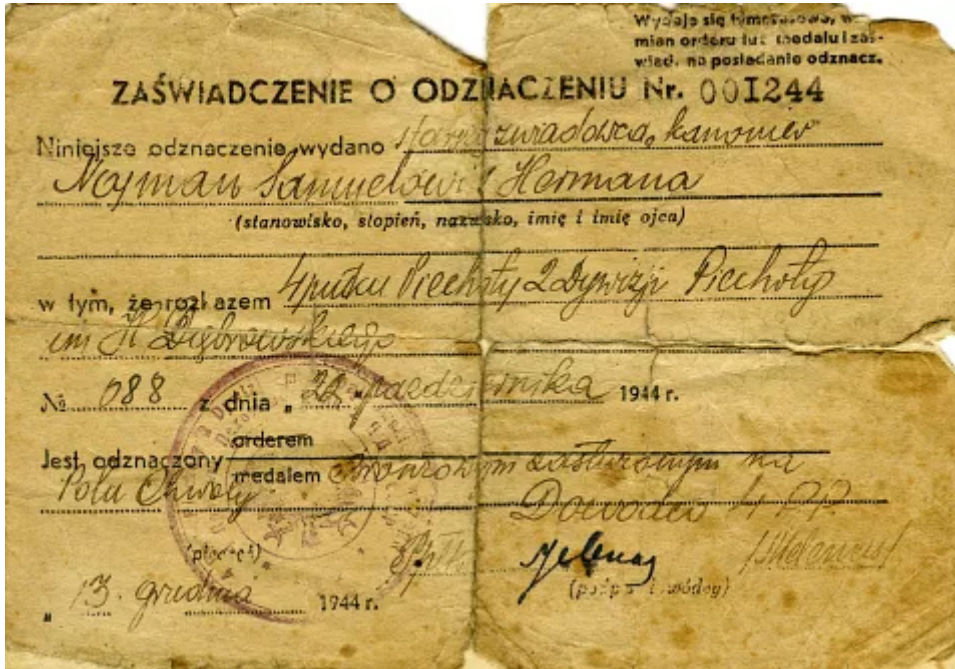 Wydaje się tymczasowo, w
mian orderu lub medalu i zaś-
wiad. na posiadanie odznacz.
ZAŚWIADCZENIE O ODZNACZENIU Nr. 001244
Niniejsze odznaczenie wydano starszy zwiadowca, kanonier
Nojman Samuelowi s Hermana
(stanowisko, stopień, nazwisko, imię i imię ojca)
w tym, że rozkazem 4 pułku Piechoty 2 Dywizji Piechoty
im H Dąbrowskiego
№ 088 z dnia „ 22 " października 1944 r.
orderem
Jest odznaczony
medalem Bronzowym zasłużonym na
Polu Chwały Dowódca 4 PP
(pieczęć) Ppłk
(podpis dowódcy)
" 13. grudnia 1944 r.